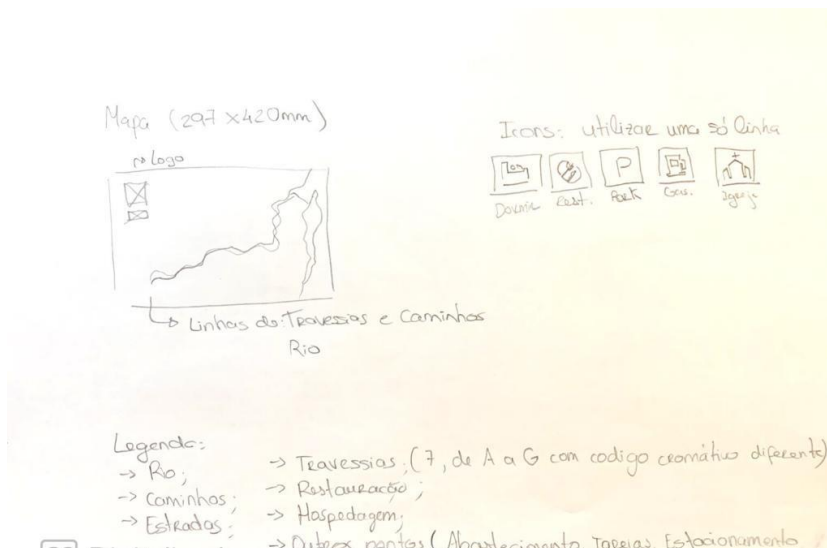 Mapa (297 x 420mm)
Logo
Linhas de Travessias e Caminhos
Rio
Icons: utilizar uma só linha
Dormir Rest. Park Gas. Igreja
Legenda:
→ Rio;
→ Caminhos;
→ Estradas;
→ Travessias; (7, de A a G com codigo cromático diferente)
→ Restauração;
→ Hospedagem;
→ Outros pontos (Abastecimento, Igrejas, Estacionamento